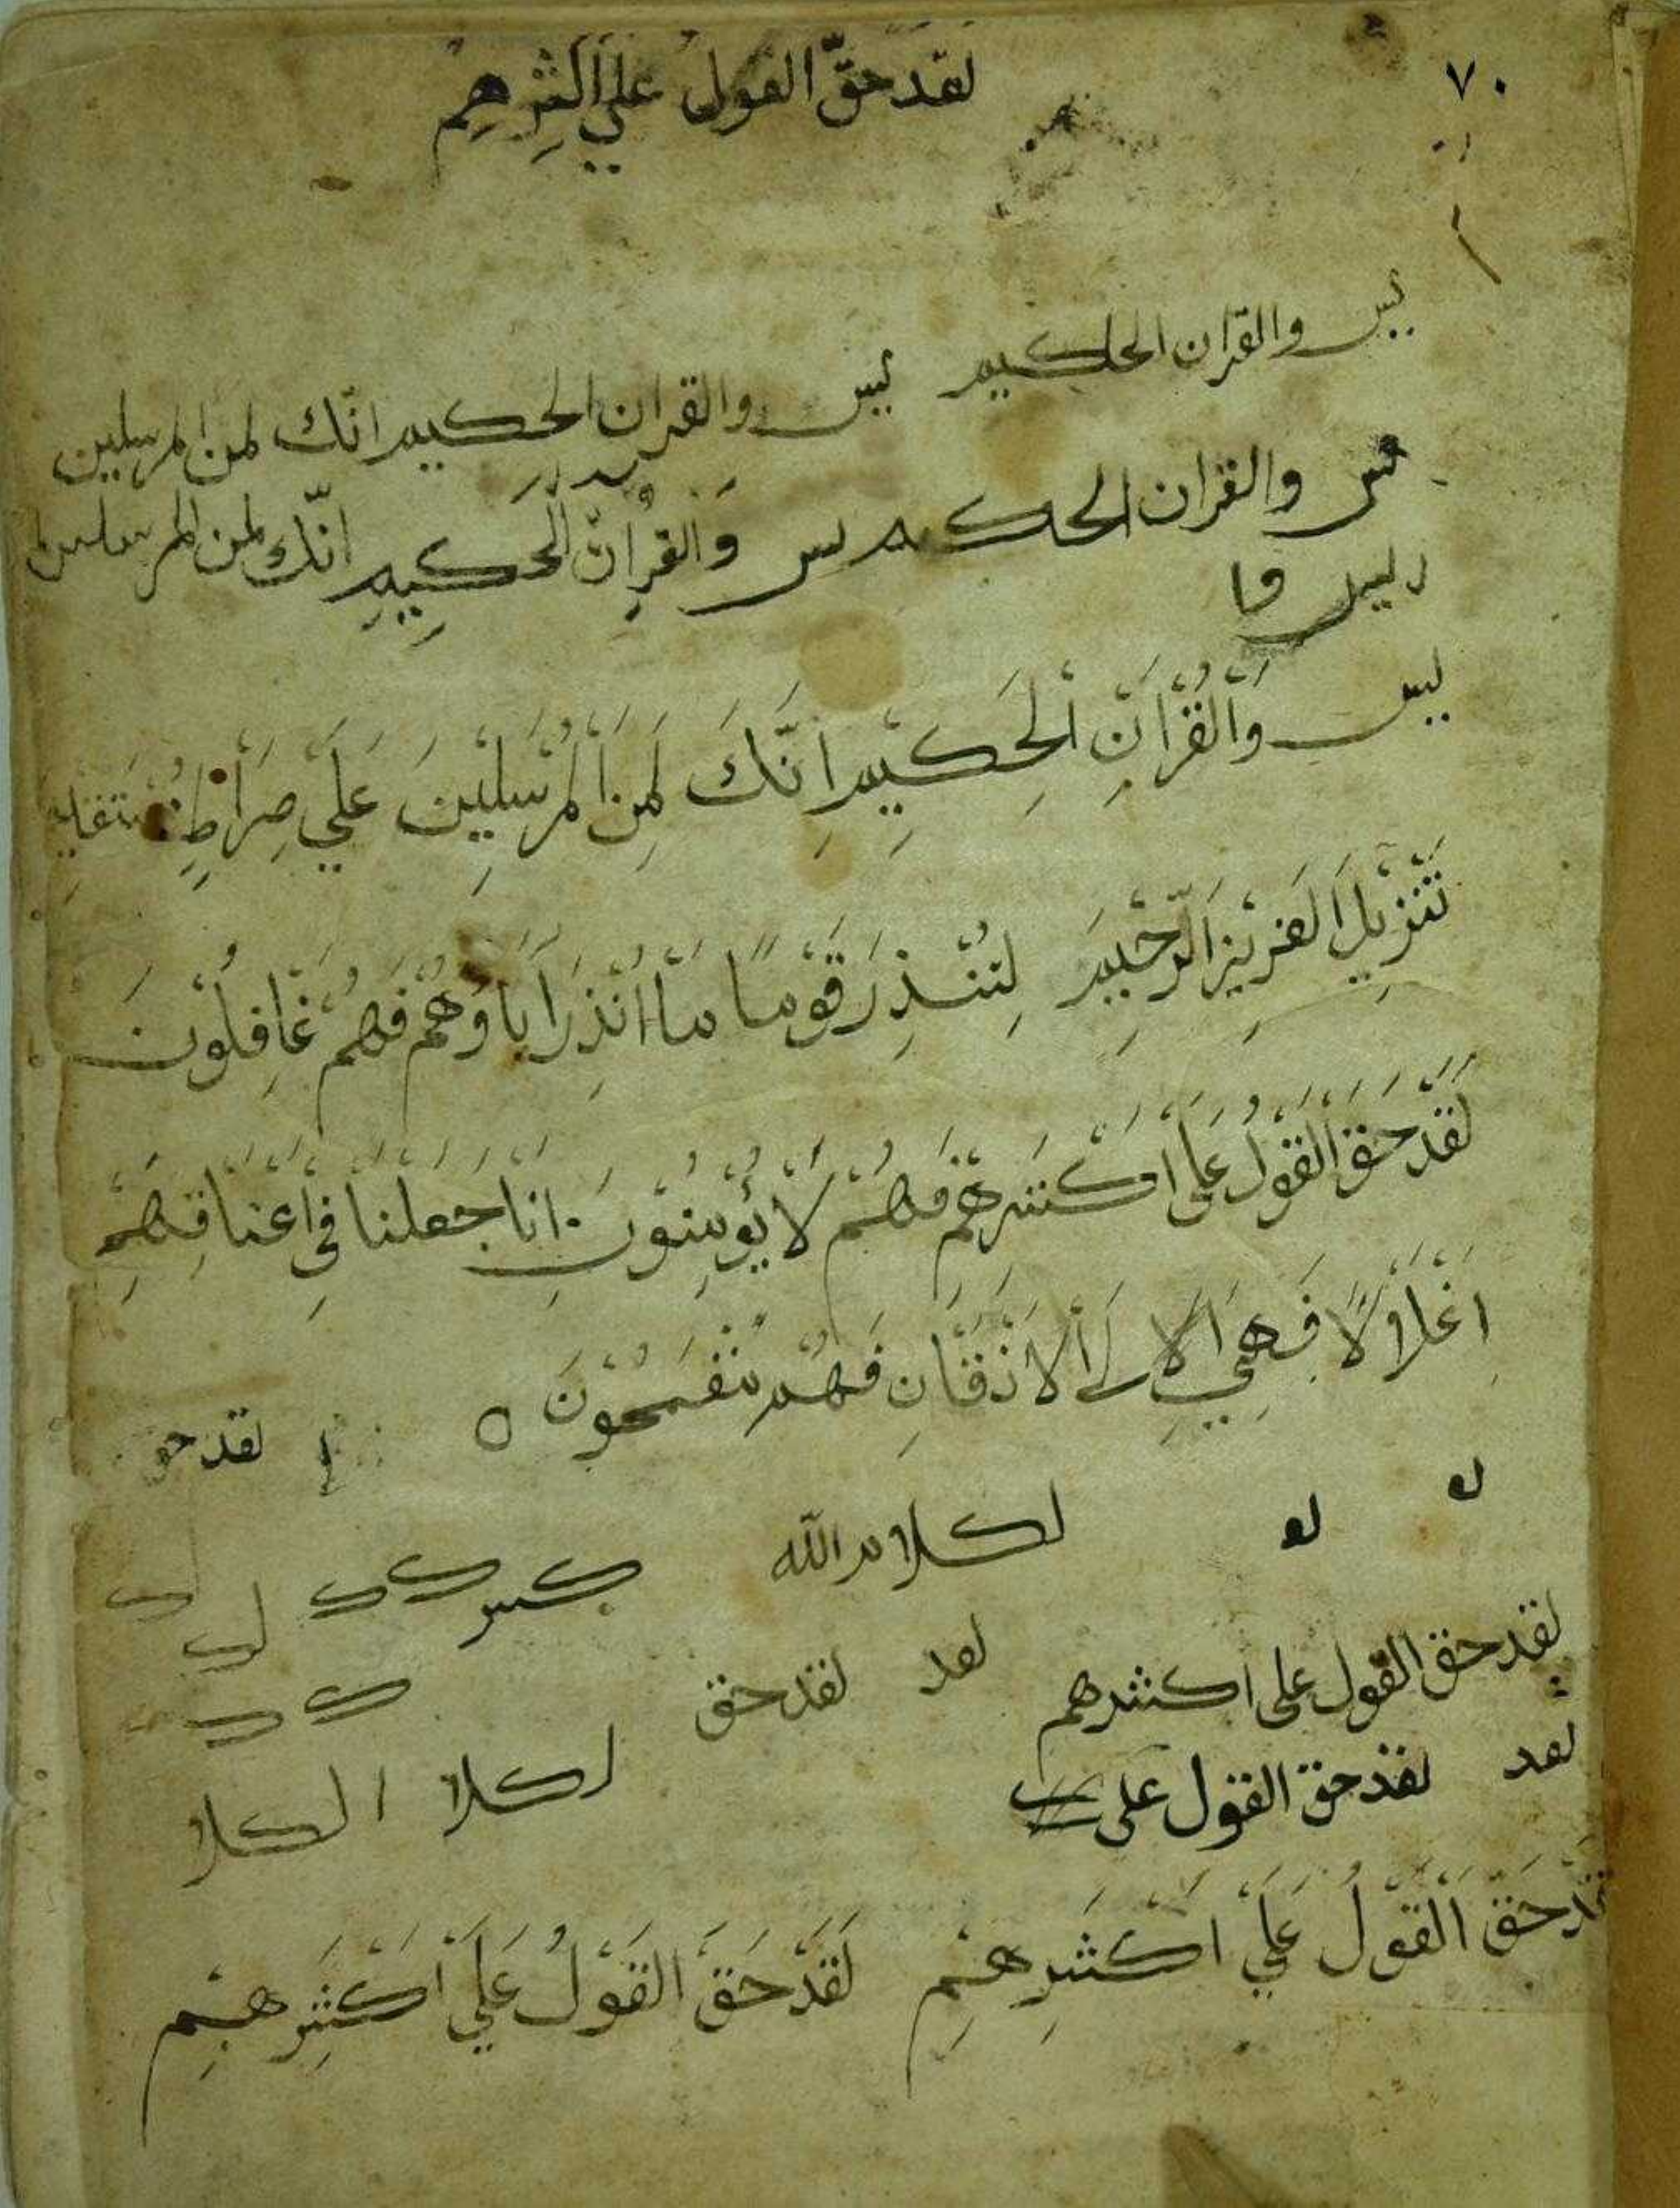 ٧٠
لقد حقّ القول علي اكثرهم
يس والقران الحكيم يس والقران الحكيم انّك لمن المرسلين
يس والقران الحكيم يس وَالقُرانِ الحَكِيمِ انّك لمن المرسلين
يس وَالْقُرْاٰنِ الْحَكِيْمِ اِنَّكَ لَمِنَ الْمُرْسَلِيْنَ عَلَي صِرَاطٍ مُسْتَقِيمٍ
تَنْزِيلَ العَزِيْزِ الرَّحْيِمِ لِتُنْذِرَ قَوْمًا مَا اُنْذِرَ اٰبَاوُهُمْ فَهُمْ غَافِلُوْنَ
لَقَدْ حَقَّ الْقَوْلُ عَلَى اَكْثَرِهِمْ فَهُمْ لَا يُؤْمِنُوْنَ انَا جَعَلنَا فِي اَعْنَاقِهِمْ
اَغْلَالًا فَهِيَ الَى الْاَذْقَانِ فَهُمْ مُقْمَحُوْنَ لقد حق
لو لو لكلام الله
لقد حق القول على اكثرهم لعد لقد حق
لعد لقد حق القول على لكلا الكلا
لقد حَقَّ الْقَوْلُ عَلَي اَكْثَرِهِمْ لَقَدْ حَقَّ الْقَوْلُ عَلَي اَكْثَرِهِمْ